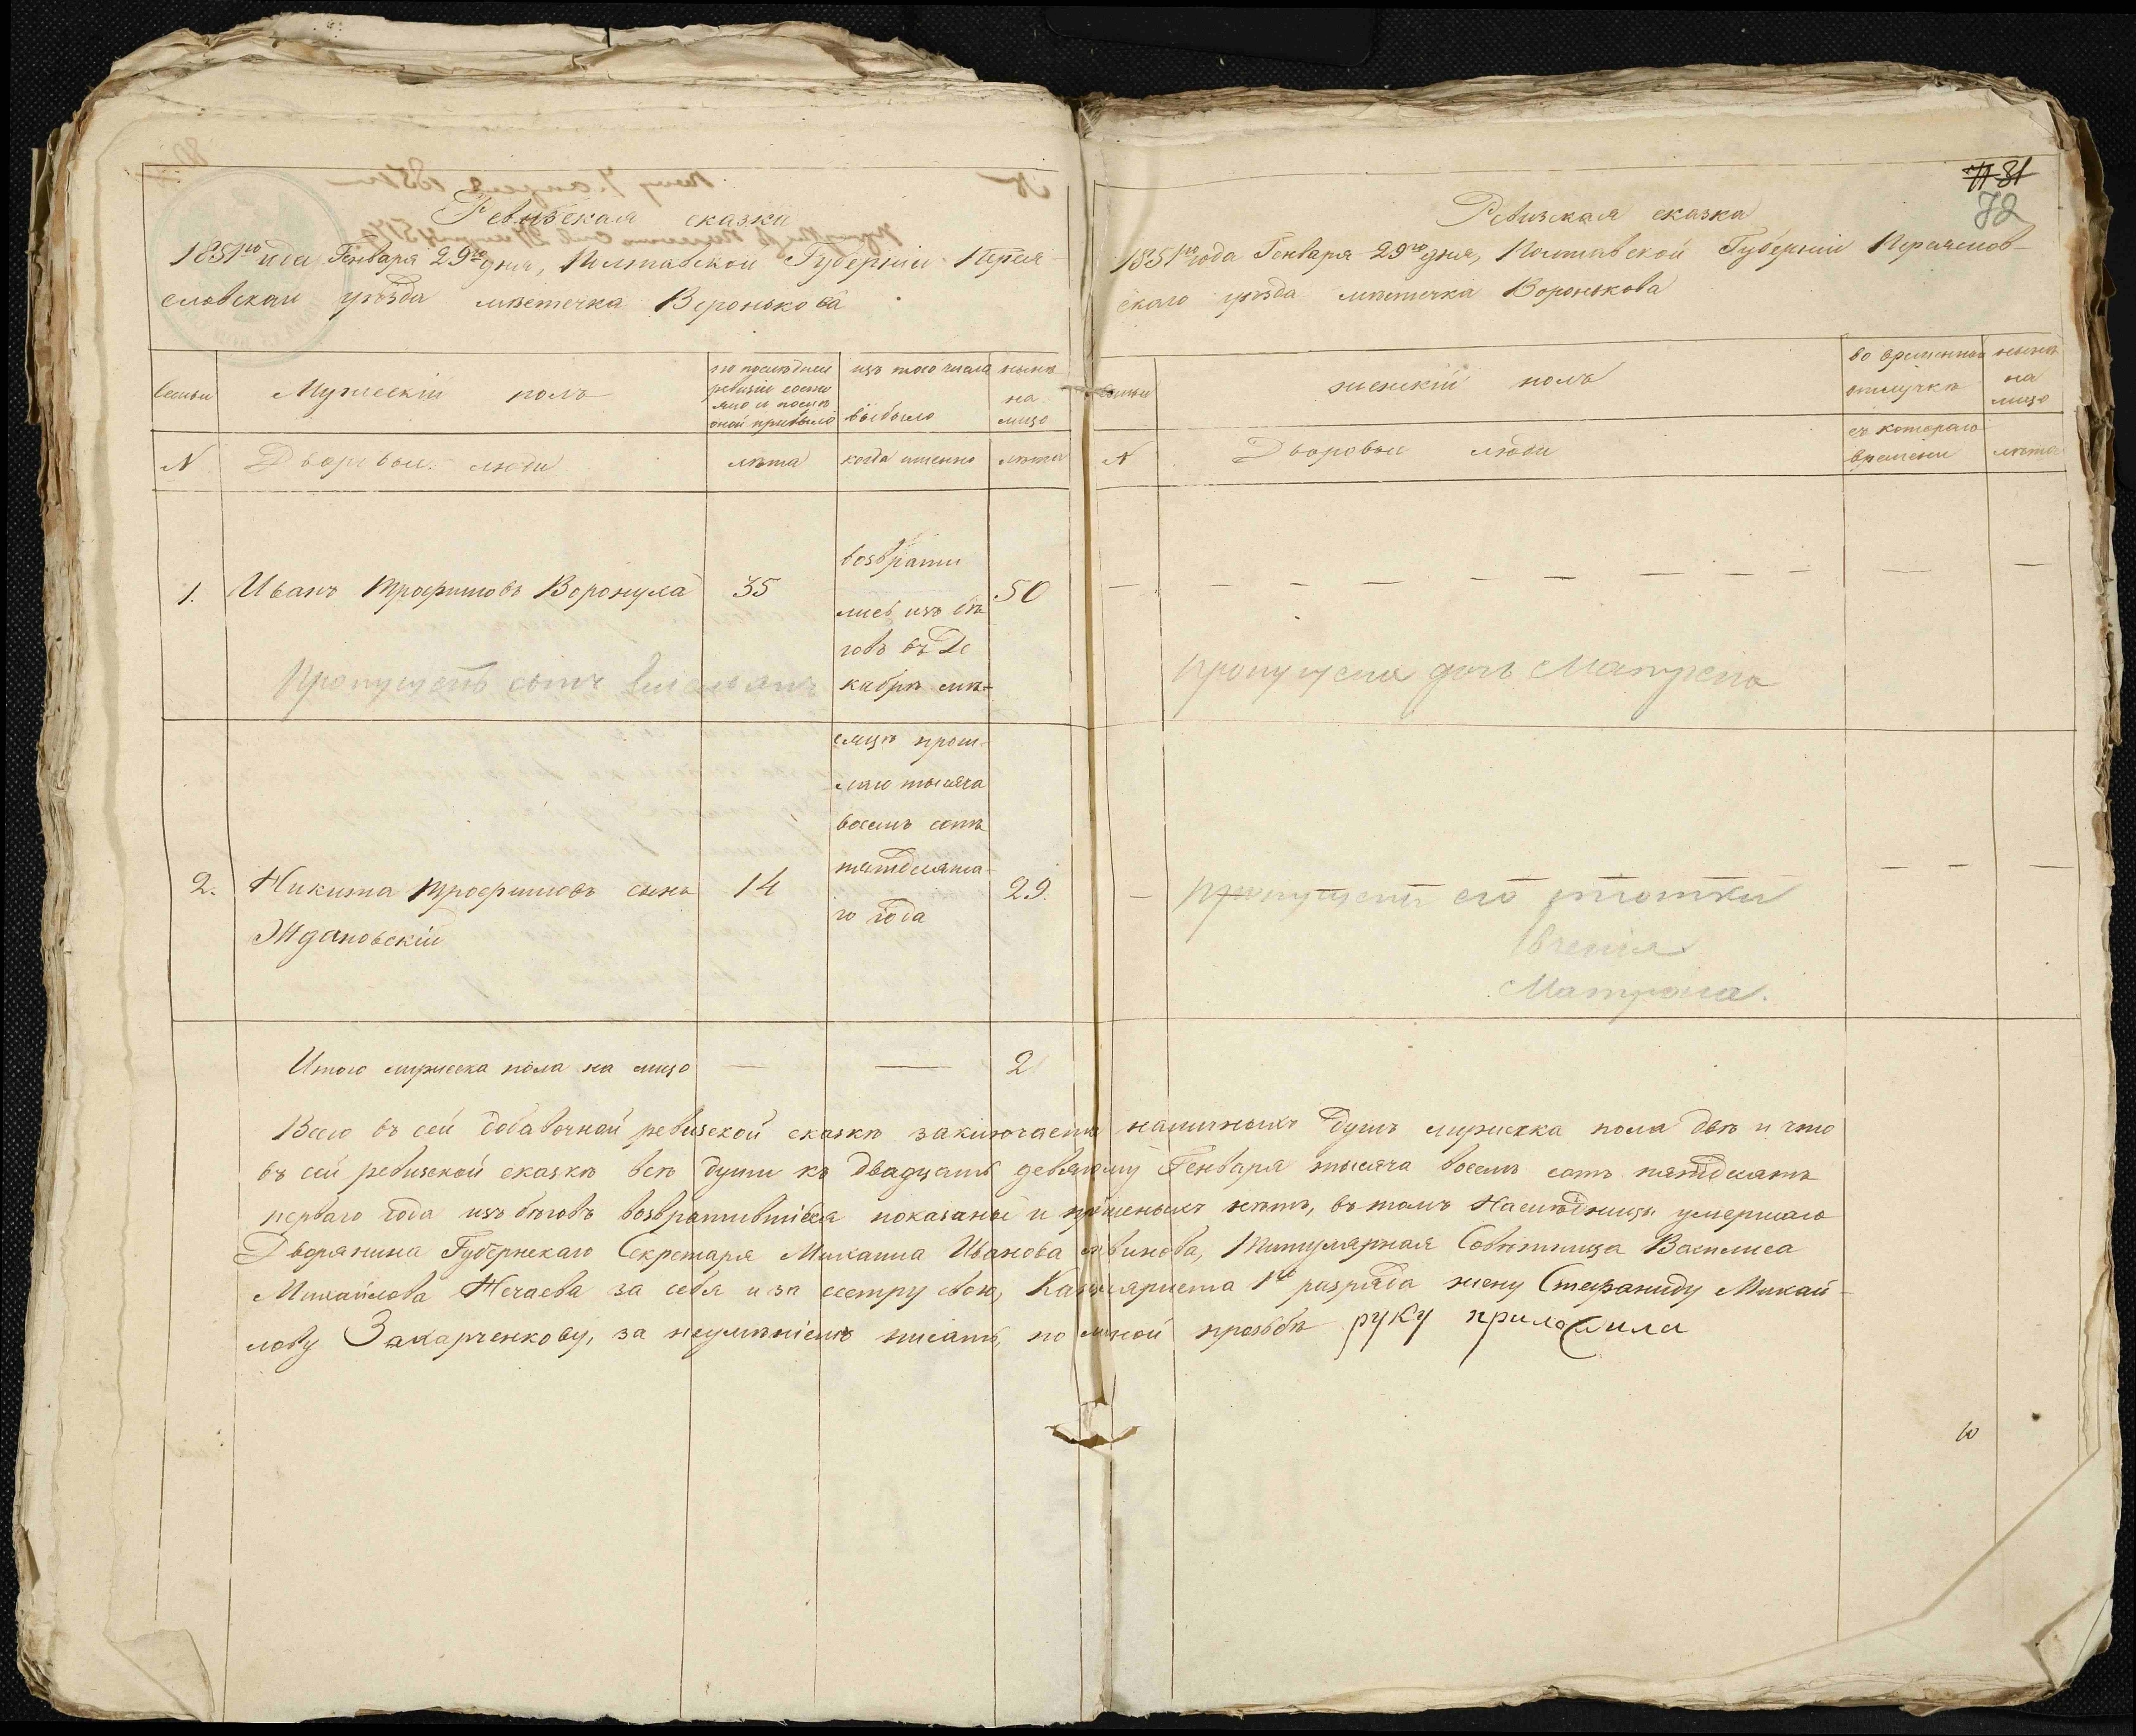 Ревизская сказка
1851го года Генваря 29го дня, Полтавской Губерніи Перея-
словскаго уѣзда мѣстечка Воронькова
семьи
Мужескій полъ
по последней
ревизіи состо
яло и послѣ
оной прибыло
изъ того числа
выбыло
нынѣ
на
лицо
N
Дворовые люди
лѣта
когда именно
лѣта
1.
Иванъ Трофимовъ Воронула
35
возврати
лись изъ бѣ
говъ въ Де
кабрѣ мѣ-
50
Пропущенъ сынъ
сяцѣ прош-
лаго тысяча
восемь сотъ
пятдесята-
го года
2.
Никита Трофимовъ сынъ
Ждановскій
14
29.
Итого мужеска пола на лицо — — 2
71 81
72
Ревизская сказка
1851го года Генваря 29го дня, Полтавской Губерніи Переяслов-
скаго уѣзда мѣстечка Воронькова
семьи
женскій полъ
во временной
отлучкѣ
нынѣ
на
лицо
N
Дворовые люди
съ котораго
времени
лѣта
пропущена дочь Матрена
его
Матрона.
Всего въ сей добавочной ревизской сказкѣ заключается наличныхъ душъ мужеска пола двѣ и что
въ сей ревизской сказкѣ всѣ души къ двадцать девятому Генваря тысяча восемь сотъ пятдесятъ
перваго года изъ бѣговъ возвратившіеся показаны и прописныхъ нѣтъ, въ томъ Наслѣдница умершаго
Дворянина Губернскаго Секретаря Михаила Иванова Литвинова, Титулярная Совѣтница Василиса
Михайлова Нечаева за себя и за сестру свою, Канцеляриста 1го разряда жену Стефаниду Михай-
лову Захарченкову, за неумѣніемъ писать, по личной прозьбѣ руку приложила